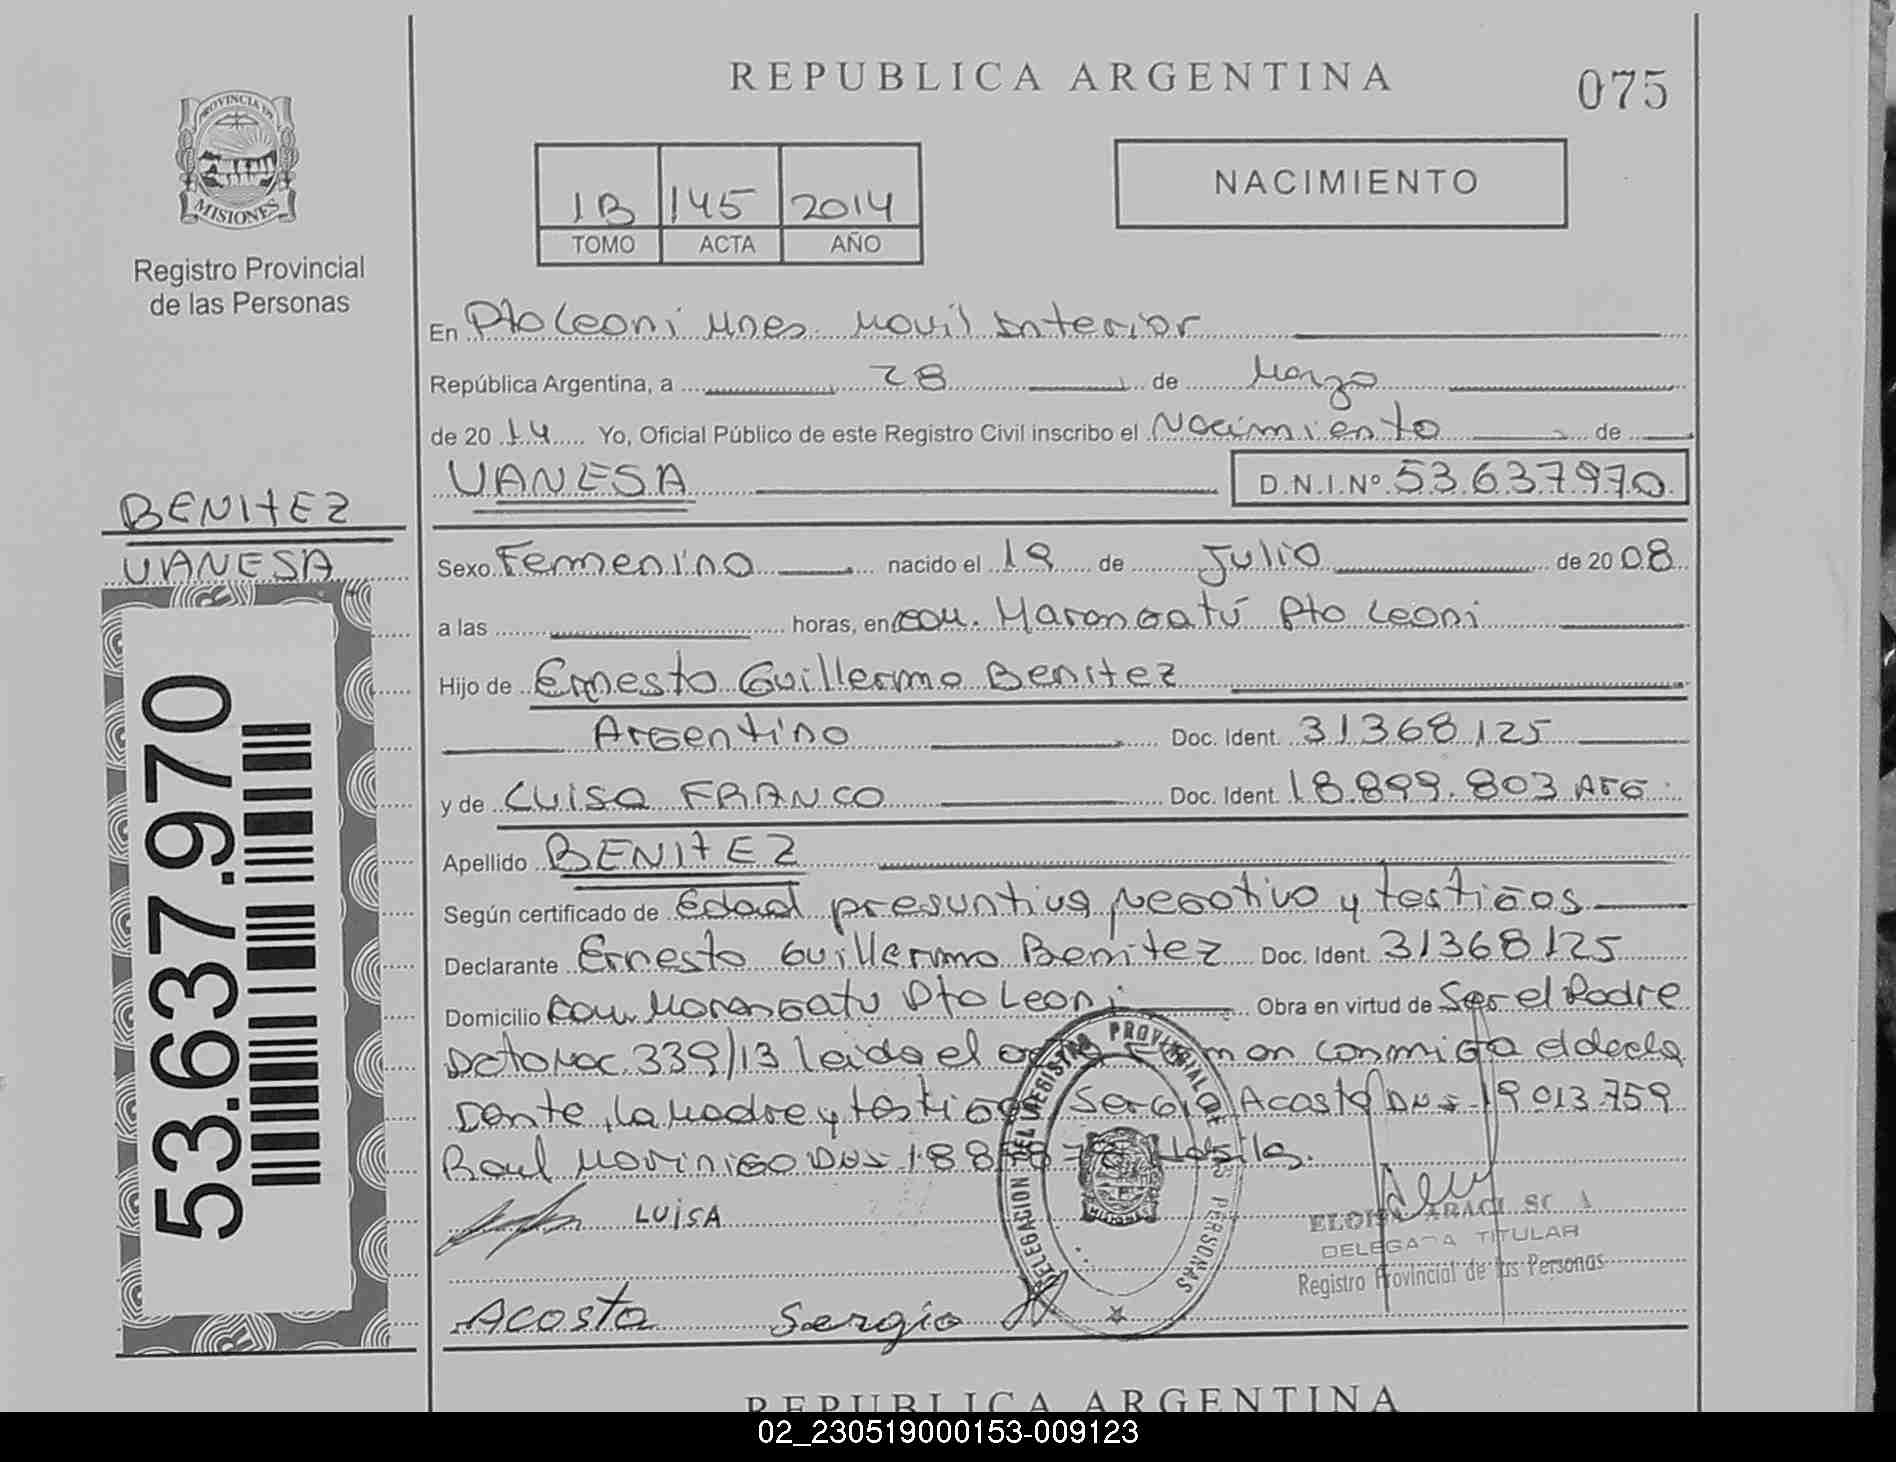 REPUBLICA ARGENTINA
075
PROVINCIA DE
MISIONES
Registro Provincial
de las Personas
1B 145 2014
TOMO ACTA AÑO
NACIMIENTO
En Pto Leoni Mnes. Movil Interior
República Argentina, a 28 de Marzo
de 20 14 Yo, Oficial Público de este Registro Civil inscribo el Nacimiento de
VANESA D.N.I.Nº 53.637.970
BENITEZ
VANESA
53.637.970
Sexo Femenino nacido el 19 de Julio de 20 08
a las horas, en Com. Marangatú Pto Leoni
Hijo de Ernesto Guillermo Benitez
Argentino Doc. Ident. 31368125
y de Luisa FRANCO Doc. Ident. 18.899.803 ARG
Apellido BENITEZ
Según certificado de Edad presuntiva, Negativo y testigos
Declarante Ernesto Guillermo Benitez Doc. Ident. 31368125
Domicilio Com. Marangatu Pto Leoni Obra en virtud de Ser el Padre
339/13 leida el conmigo el decla
rante, la Madre y testigos Sergio Acosta DNI 19013759
Raul DNI
LUISA
DELEGACION DEL REGISTRO PROVINCIAL DE LAS PERSONAS
MISIONES
DELEGADA TITULAR
Registro Provincial de las Personas
Acosta Sergio
REPUBLICA ARGENTINA
02_230519000153-009123